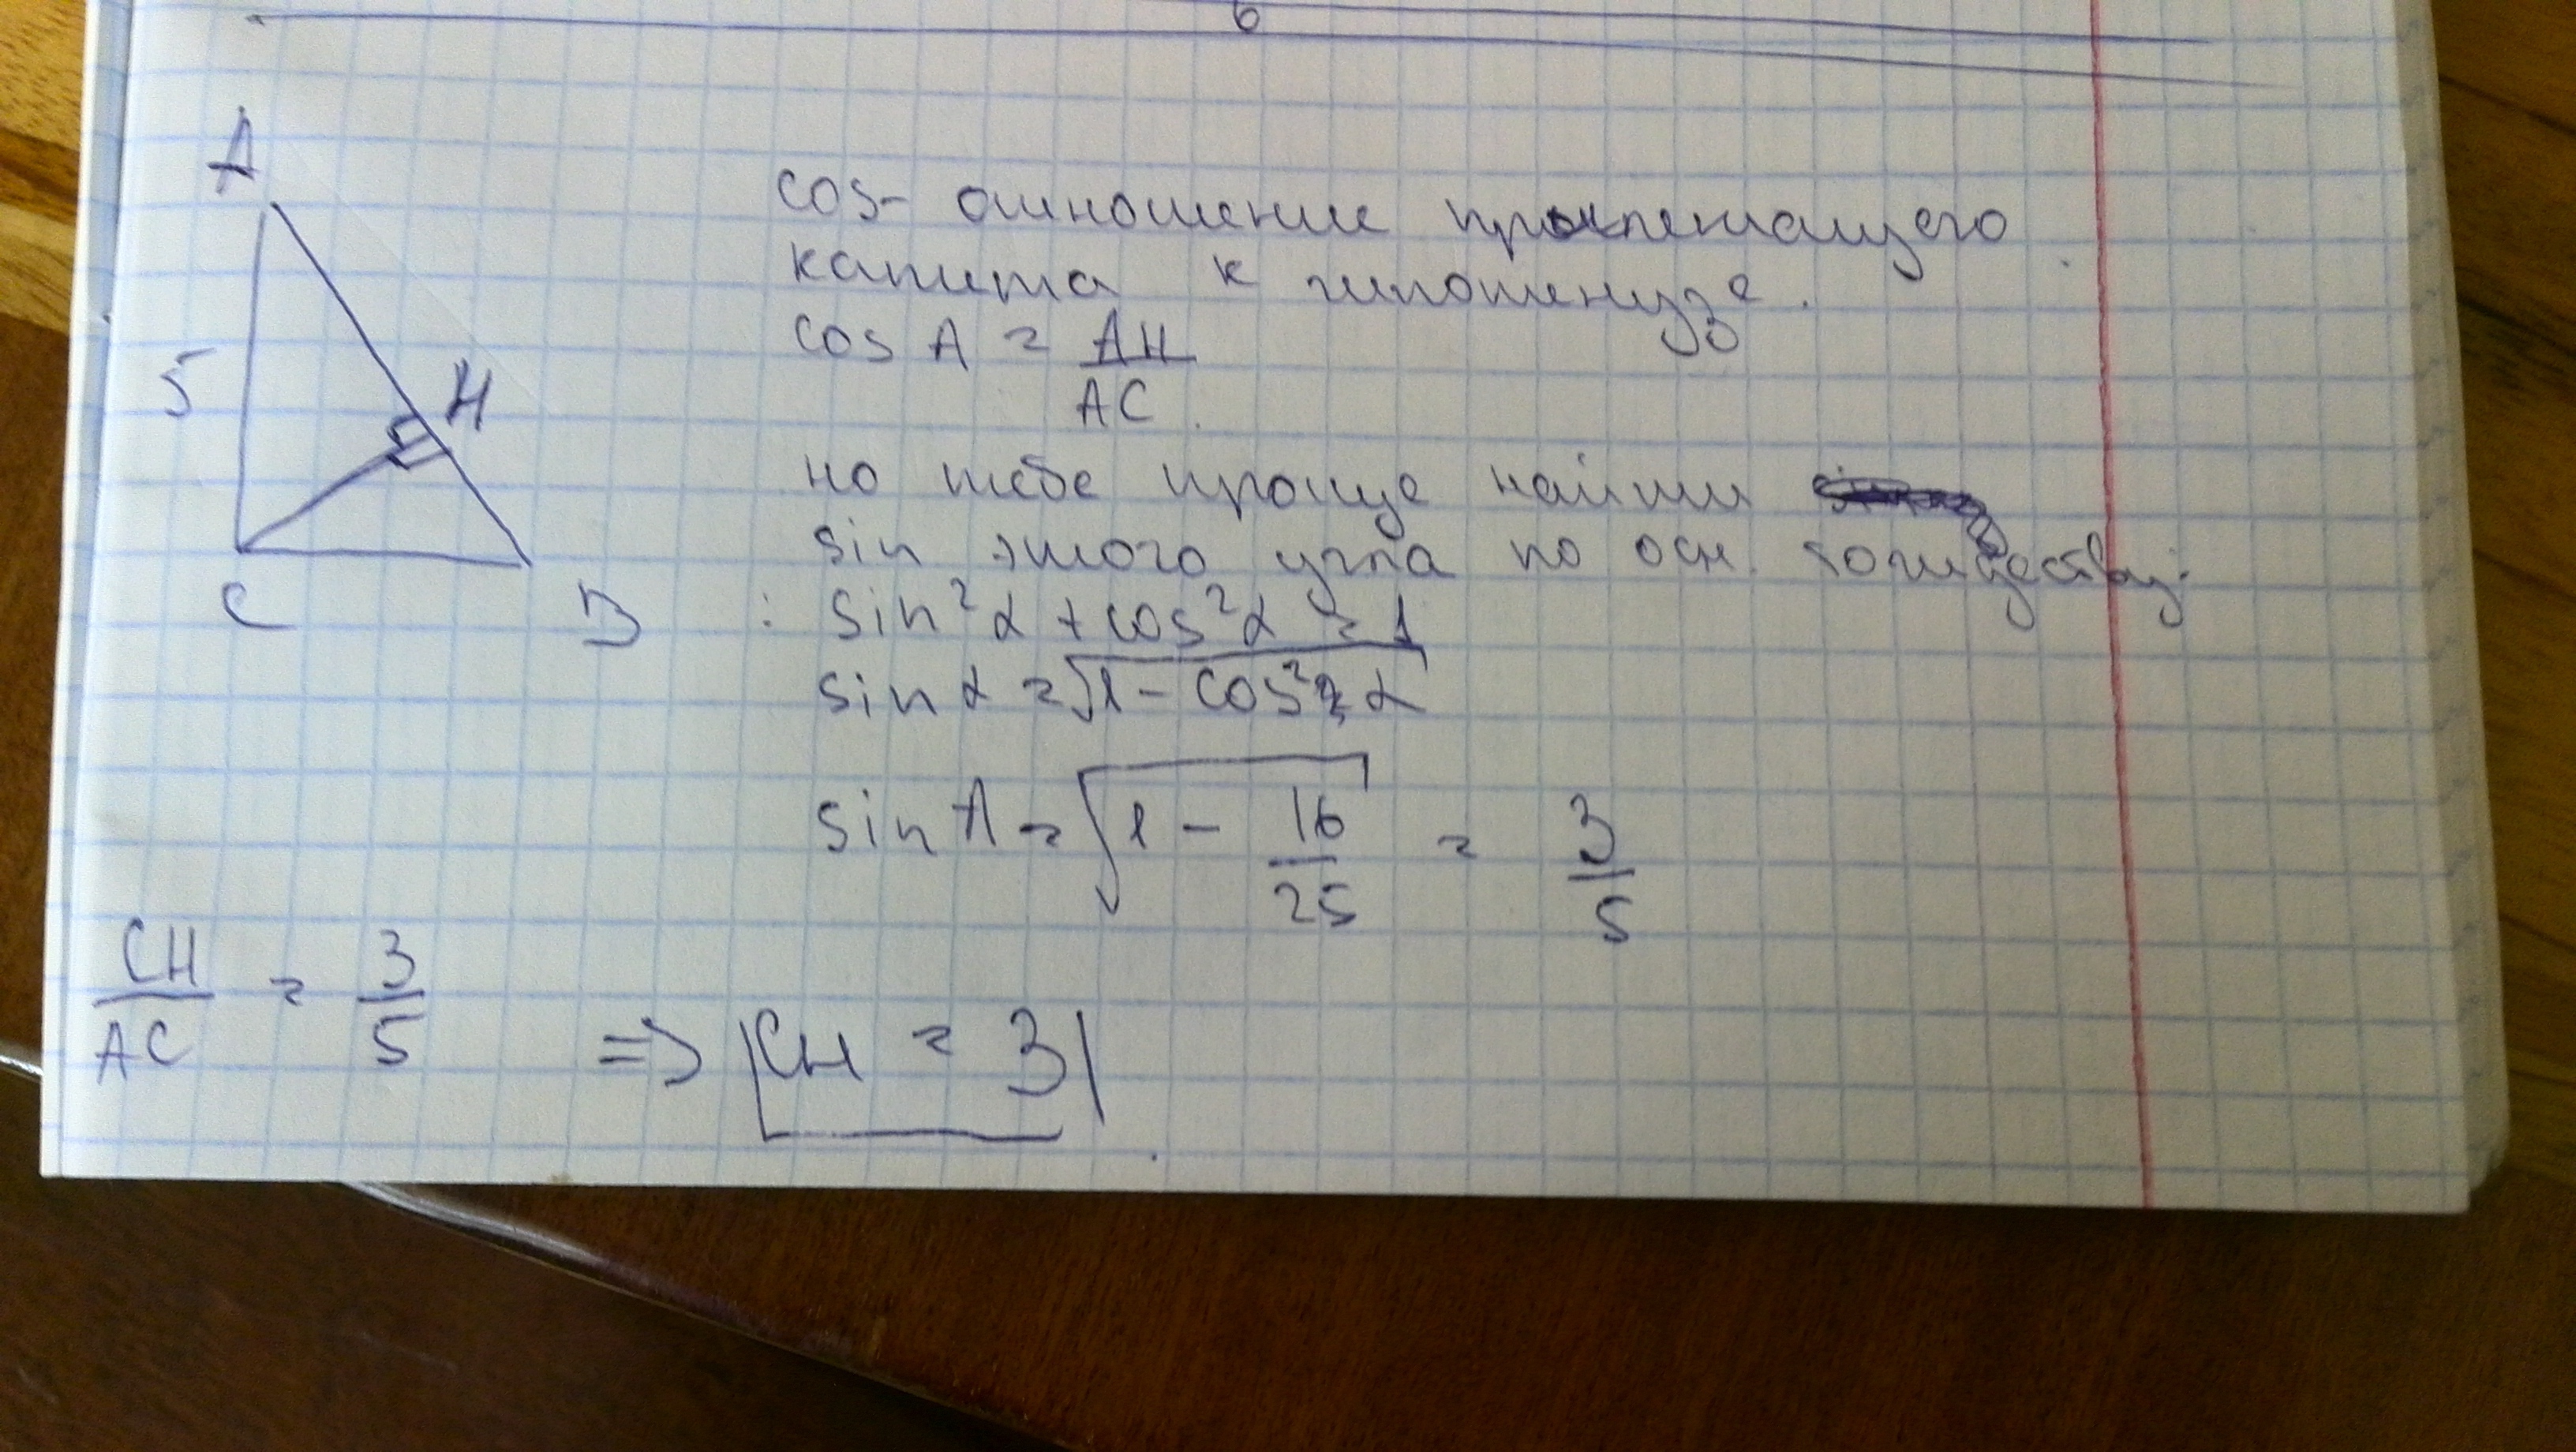 6
A
5
H
C
B
cos - отношение прилежащего
катета к гипотенузе.
cos A = AH
AC
но тебе проще найти
sin этого угла по осн. тождеству.
: sin²α + cos²α = 1
sin α = √1 - cos² α
sin A = √1 - 16/25 = 3/5
CH/AC = 3/5 => CH = 3